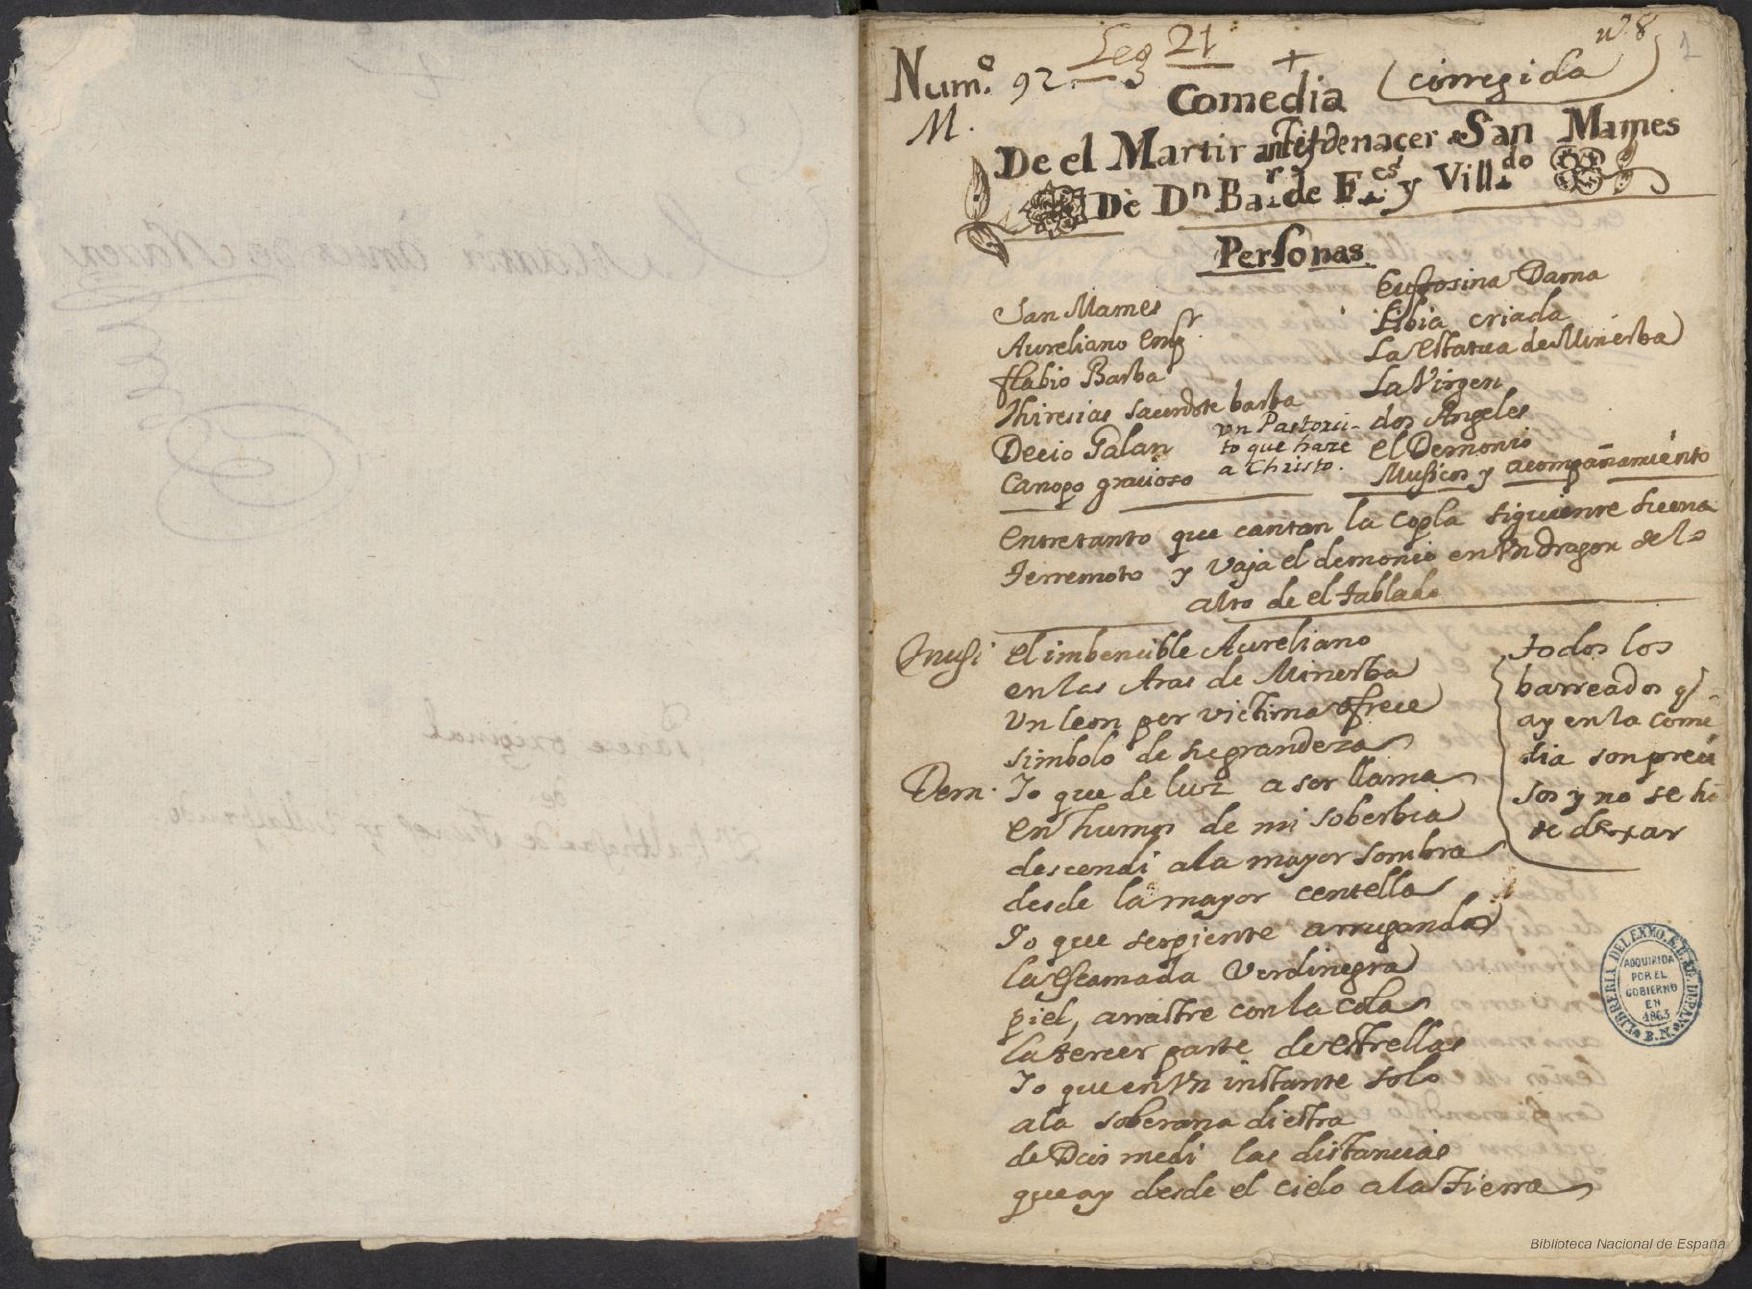 Leg 21
nº 8
1
Num.º 92
+
Comedia
(corregida)
M.
De el Martir antes de nacer San Mames
De Dn Bar.r de F.ces y Vill.do
Personas
San Mames
Aureliano Empr.
flabio Barba
Thiresias sacerdote barba
Decio Galan
Canopo gracioso
un Pastorci-
to que haze
a Christo.
Eufrosina Dama
Libia criada
La estatua de Minerba
La Virgen
dos Angeles
el Demonio
Musicos y acompañamiento
Entretanto que cantan la copla siguiente suena
terremoto y vaja el demonio en un dragon de lo
alto de el tablado
musi el imbencible Aureliano
en las Aras de Minerba
un leon por victima ofrece
simbolo de su grandeza
Dem. Io que de luz a ser llama
en humos de mi soberbia
descendi a la mayor sombra
desde la mayor centella
Io que serpiente arrugando
la escamada verdinegra
piel, arrastre con la cola
la tercer parte de estrellas
Io que en un instante solo
a la soberana diestra
de Dios medi las distancias
que ay desde el cielo a la tierra
todos los
barreados q
ay en la come
dia son preci
sos y no se ha
de dexar
LIBRERIA DEL EXMO. S. D. DE DURAN
ADQUIRIDA
POR EL
GOBIERNO
EN
1863
B.N.
Biblioteca Nacional de España